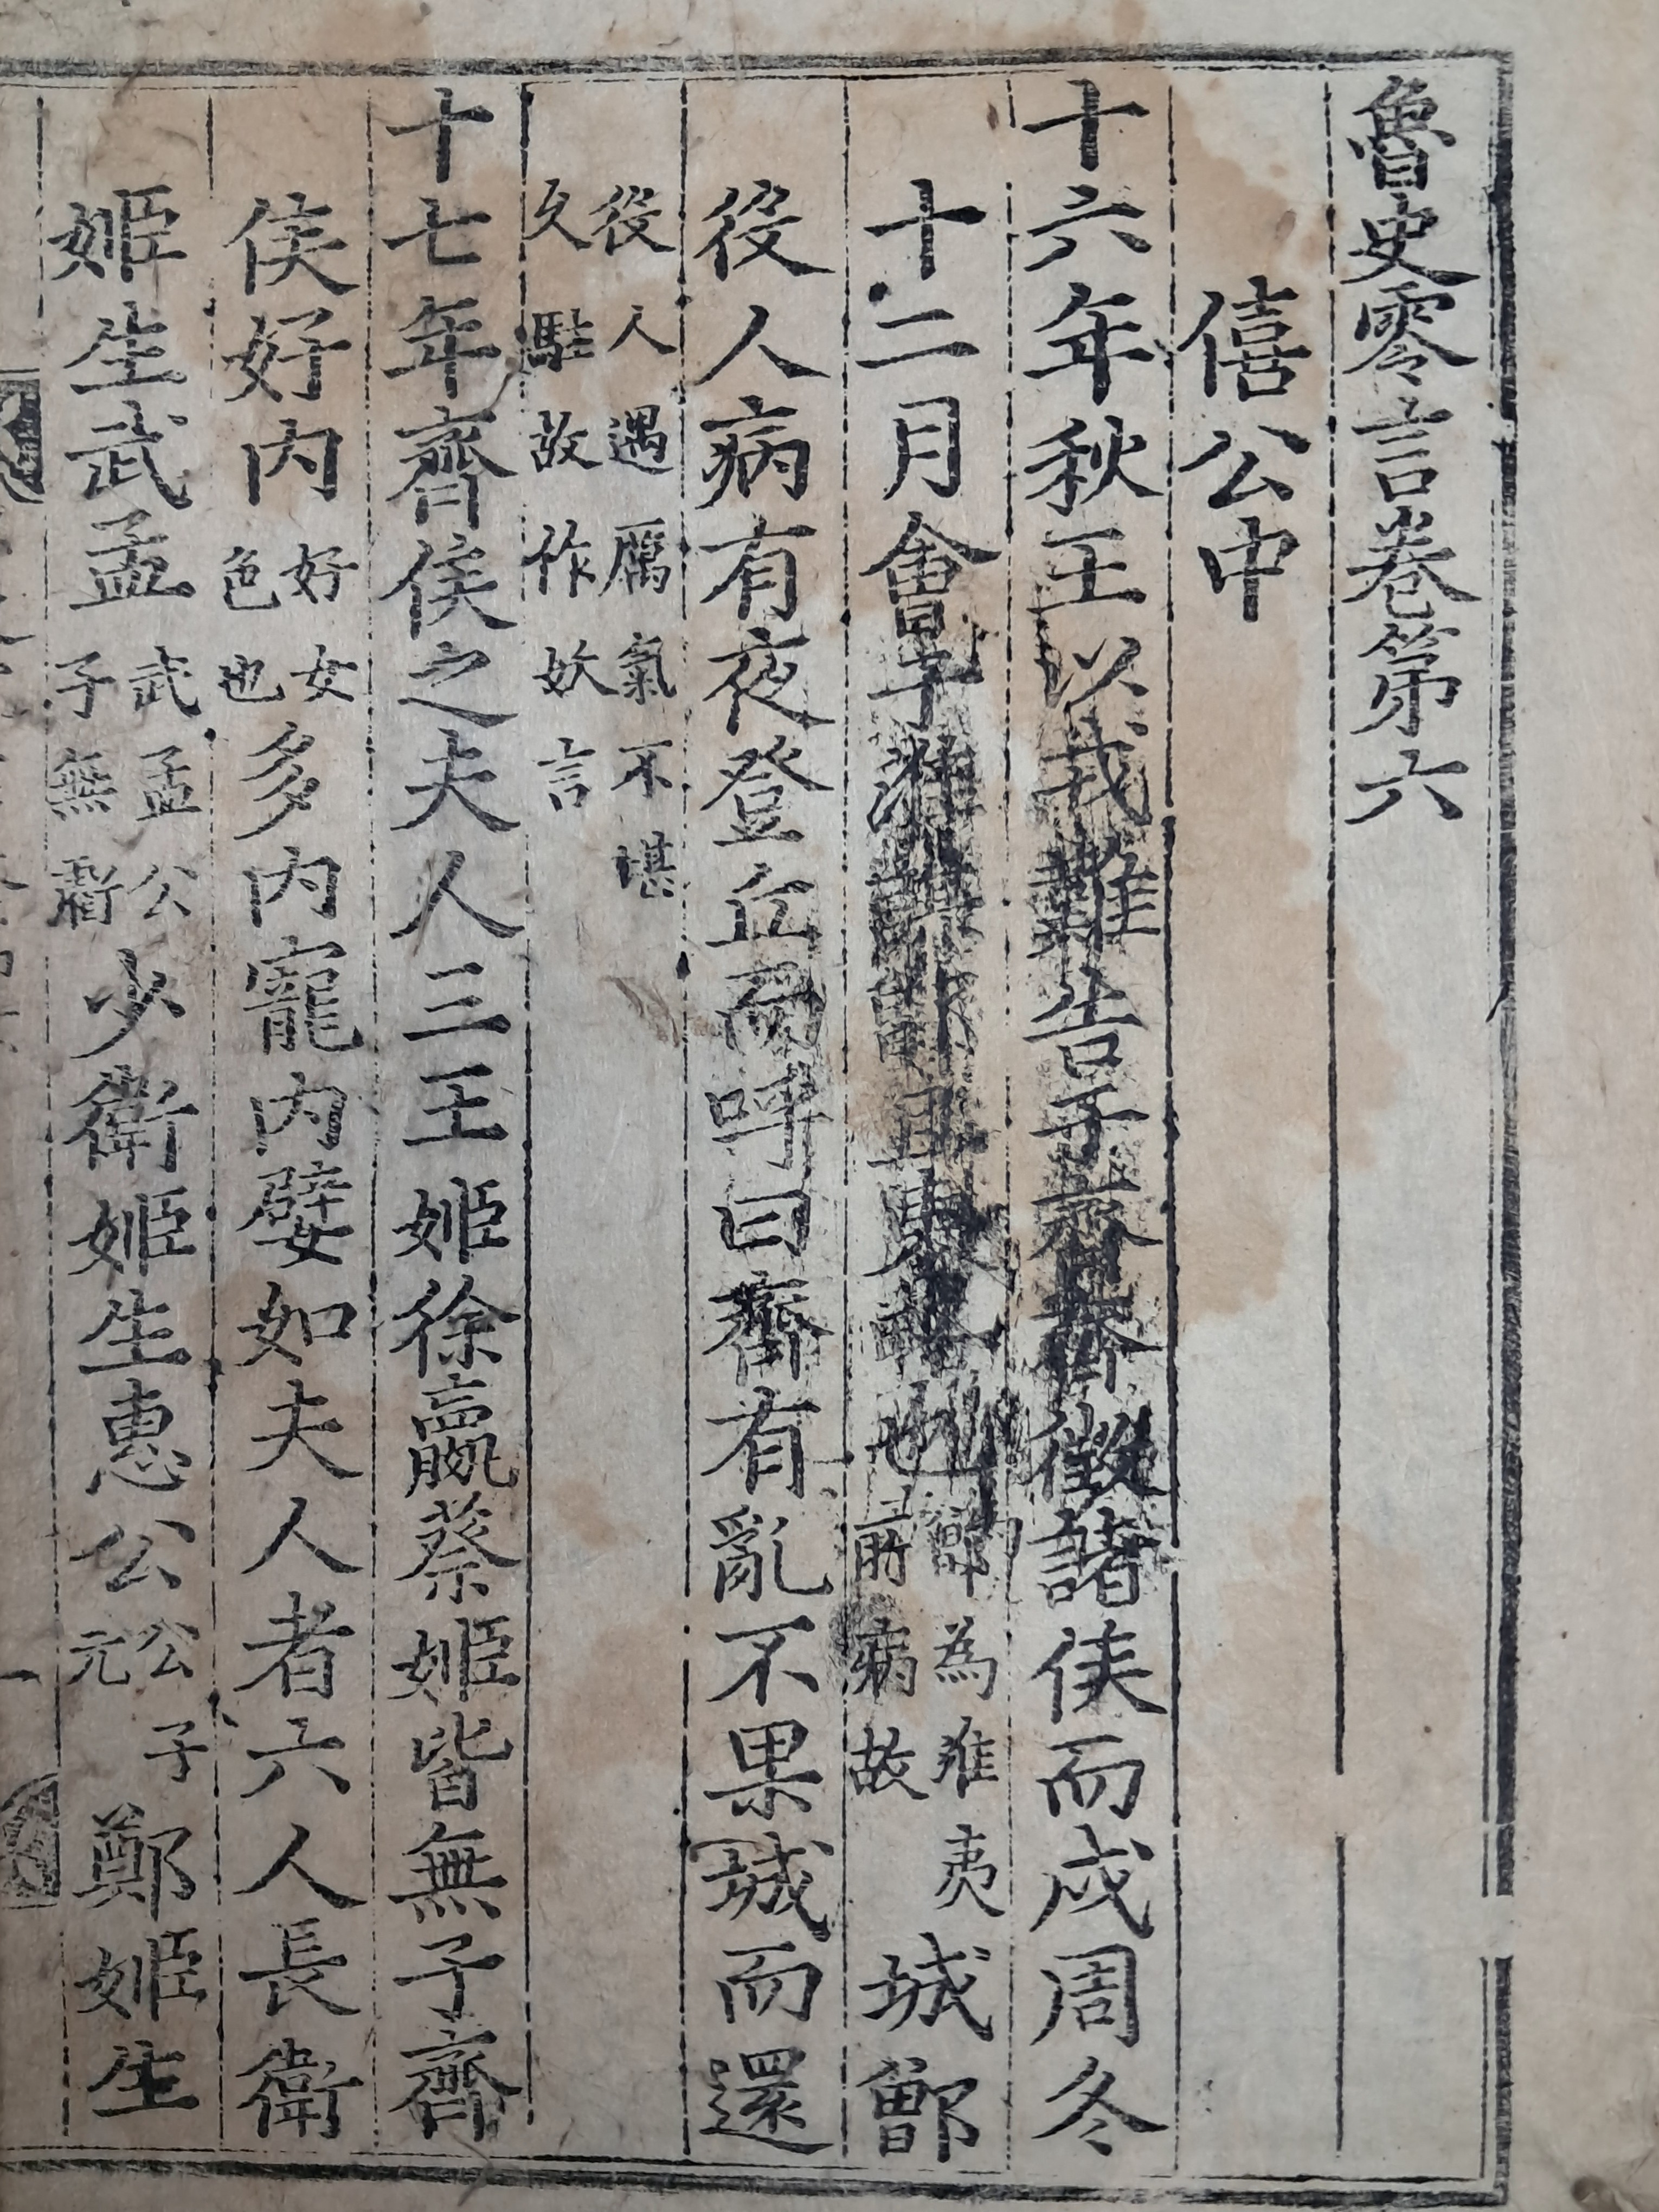 魯史零言卷第六
僖公中
十六年秋王以戎難告于齊齊徵諸侯而戍周冬
十二月會于淮謀鄫且東略也鄫為淮夷所病故城鄫
役人病有夜登丘而呼曰齊有亂不果城而還
役人遇厲氣不堪久駐故作妖言
十七年齊侯之夫人三王姬徐嬴蔡姬皆無子齊
侯好內好女色也多內寵內嬖如夫人者六人長衛
姬生武孟武孟公子無虧少衛姬生惠公公子元鄭姬生